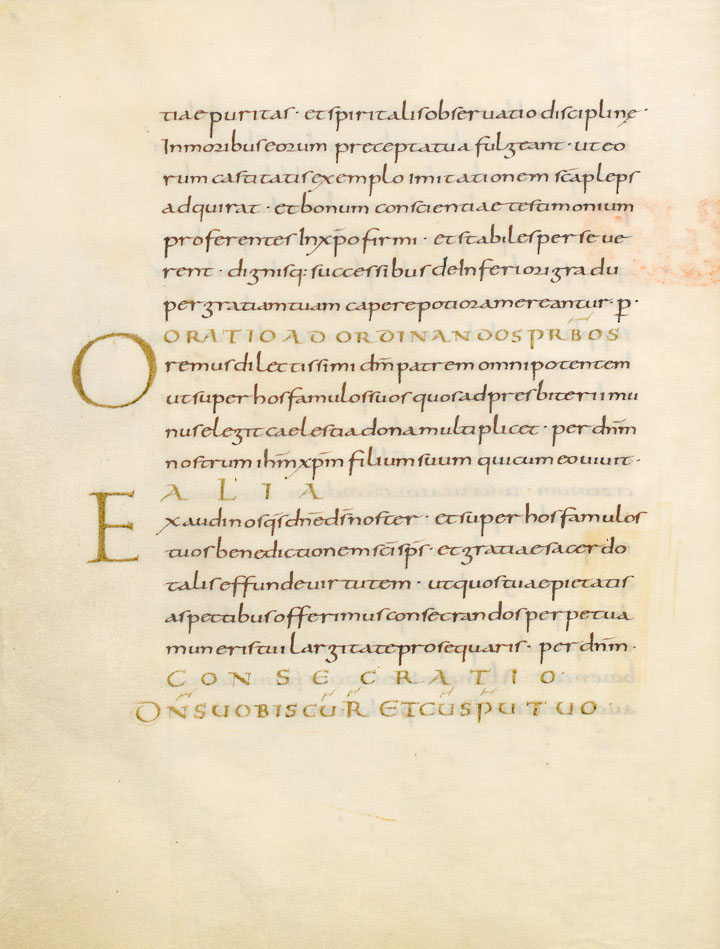 tiae puritas · et spiritalis observatio discipline ·
In moribus eorum precepta tua fulgeant · ut eo
rum castitatis exemplo imitationem sc̄a pleps
adquirat · et bonum conscientiae testimonium
proferentes In xp̄o firmi · et stabiles perseve
rent · dignisq: successibus de Inferiori gradu
per gratiam tuam capere potiora mereantur · p̄ ·
ORATIO AD ORDINANDOS PRB̄OS
Oremus dilectissimi dm̄ patrem omnipotentem
ut super hos famulos suos quos ad presbiterii mu
nus elegit caelestia dona multiplicet · per dn̄m
nostrum ihm̄ xp̄m filium suum qui cum eo vivit ·
ALIA
Exaudi nos qs̄ dn̄e ds̄ noster · et super hos famulos
tuos benedictionem sc̄i sp̄s · et gratiae sacerdo
talis effunde virtutem · ut quos tuae pietatis
aspectibus offerimus consecrandos perpetua
muneris tui largitate prosequaris · per dn̄m ·
CONSECRATIO
DN̄S UOBISCŪ R̄ ET CŪ SP̄U TUO ·